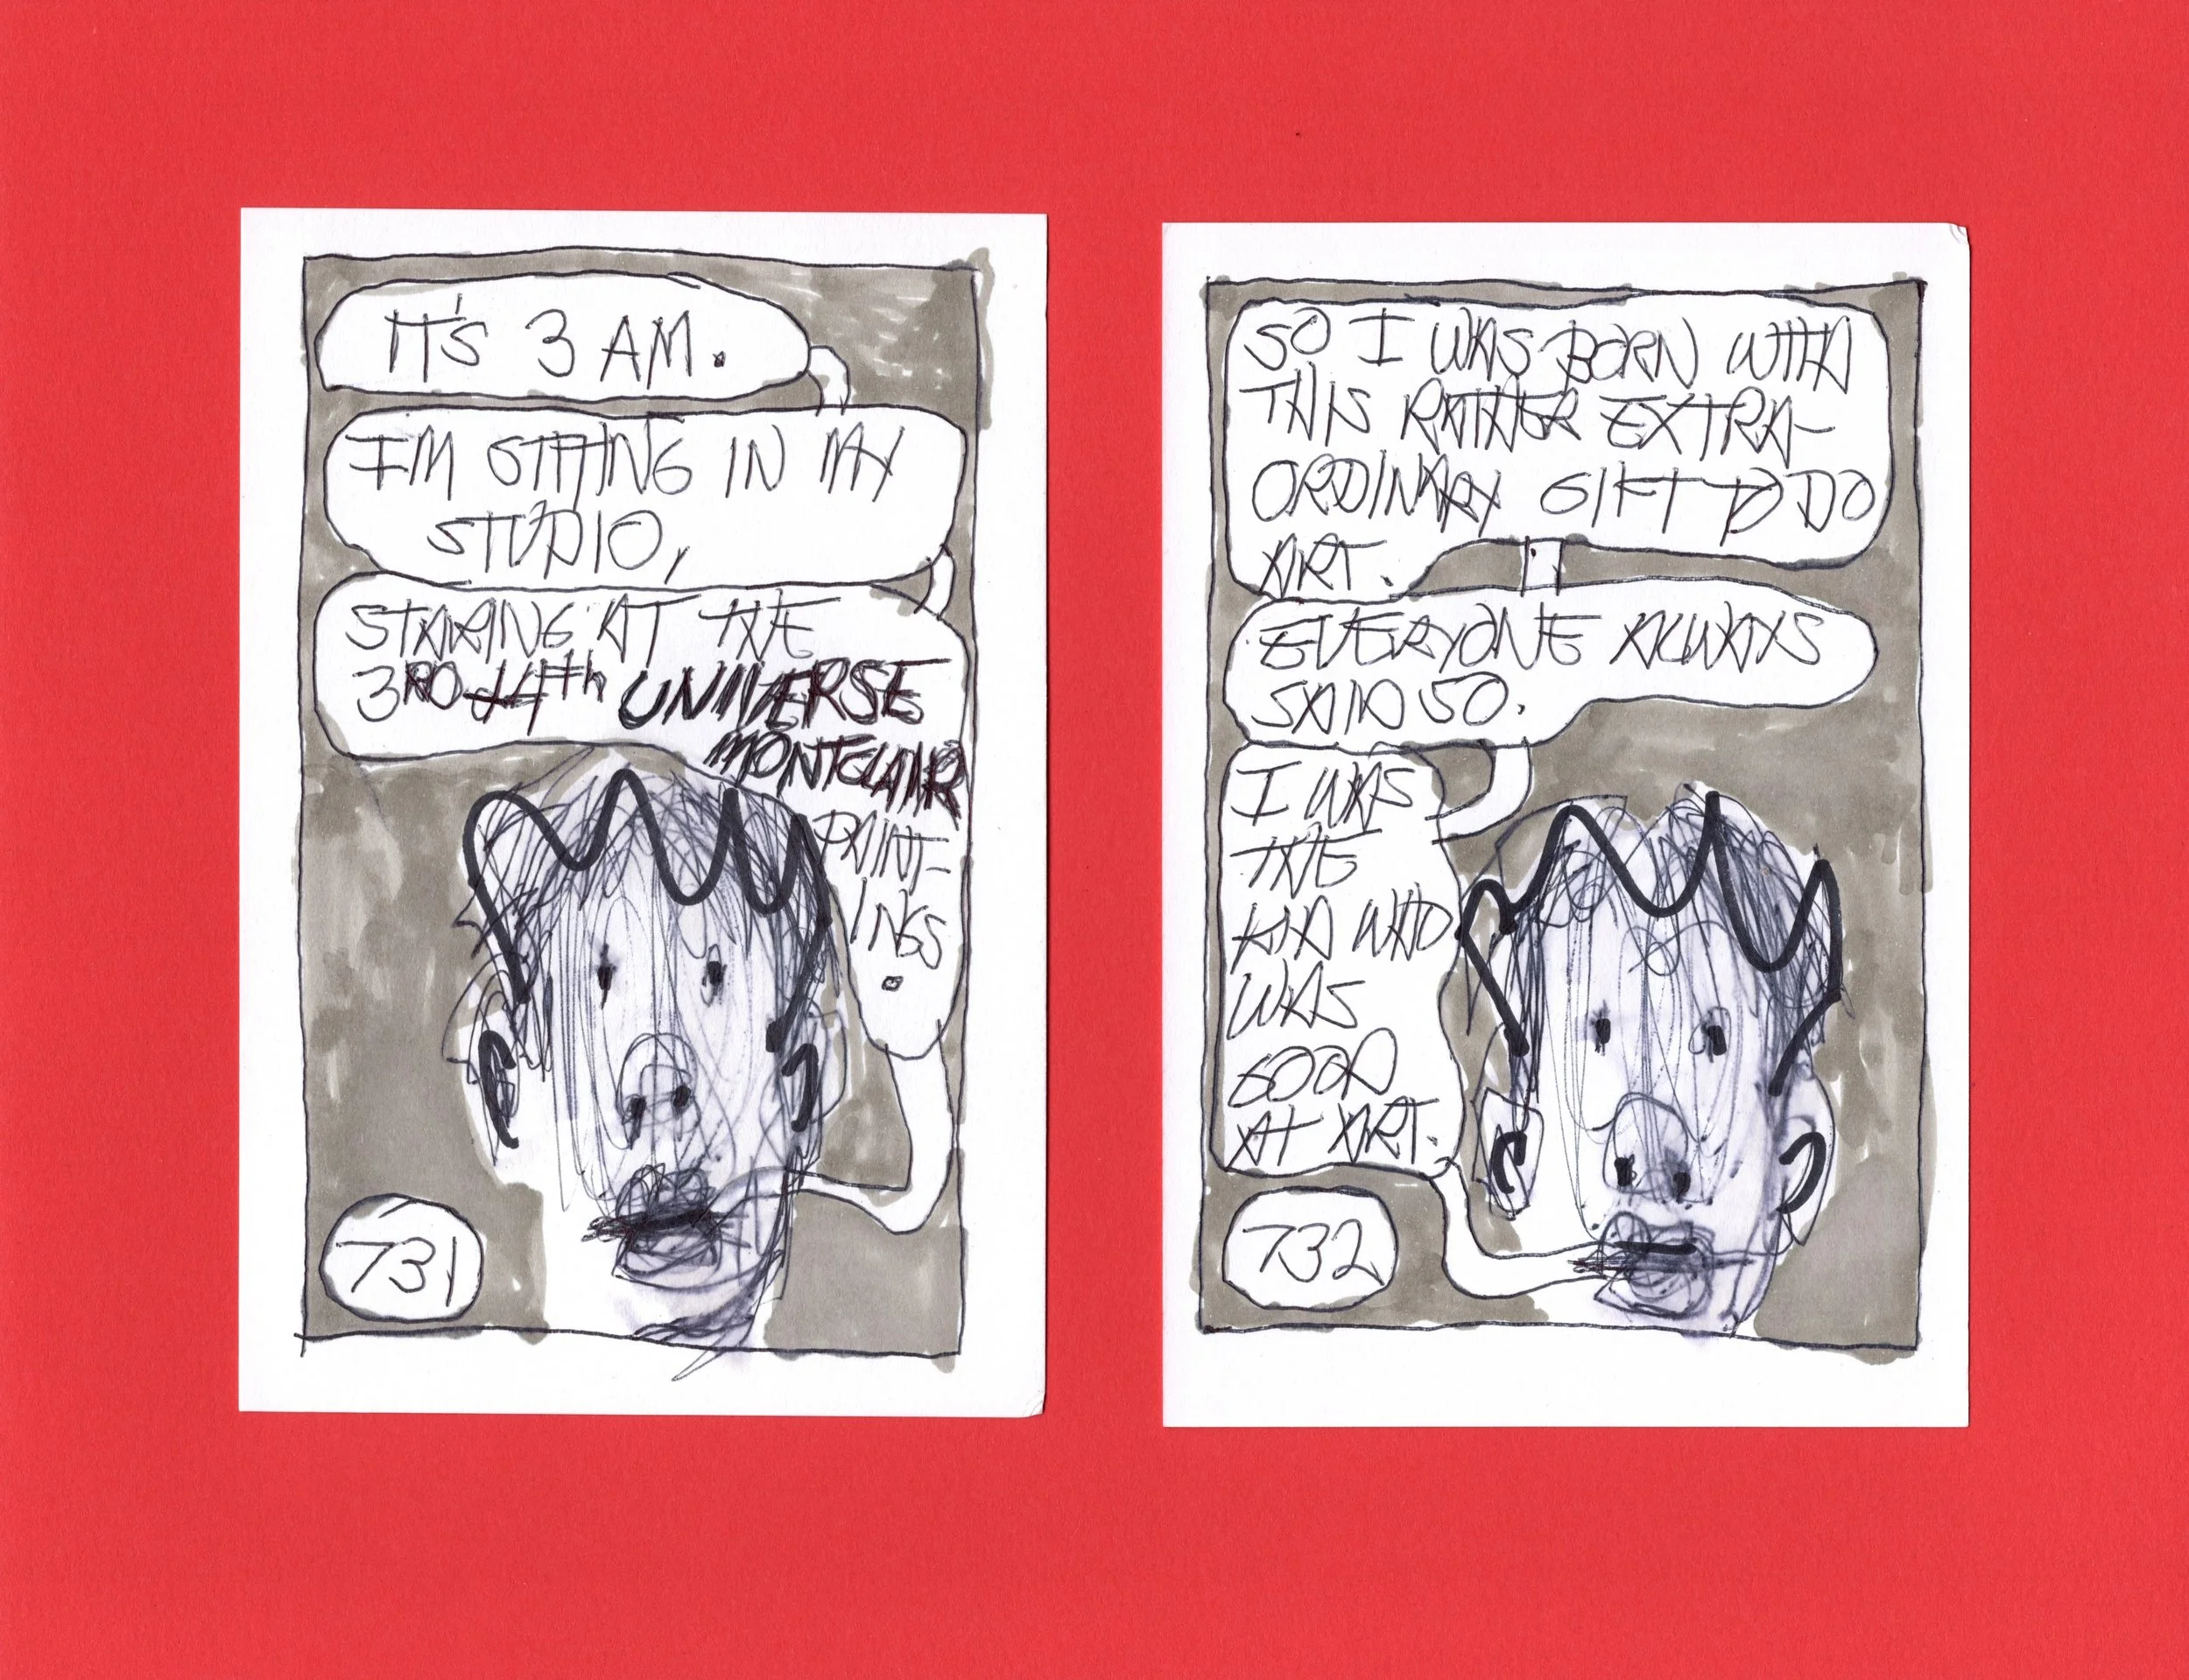 IT'S 3 AM.
I'M SITTING IN MY
STUDIO,
STARING AT THE
3RD + 4th UNIVERSE
MONTCLAIR
PAINT-
INGS
.
731
SO I WAS BORN WITH
THIS RATHER EXTRA-
ORDINARY GIFT TO DO
ART.
EVERYONE ALWAYS
SAID SO.
I WAS
THE
KID WHO
WAS
GOOD
AT ART.
732